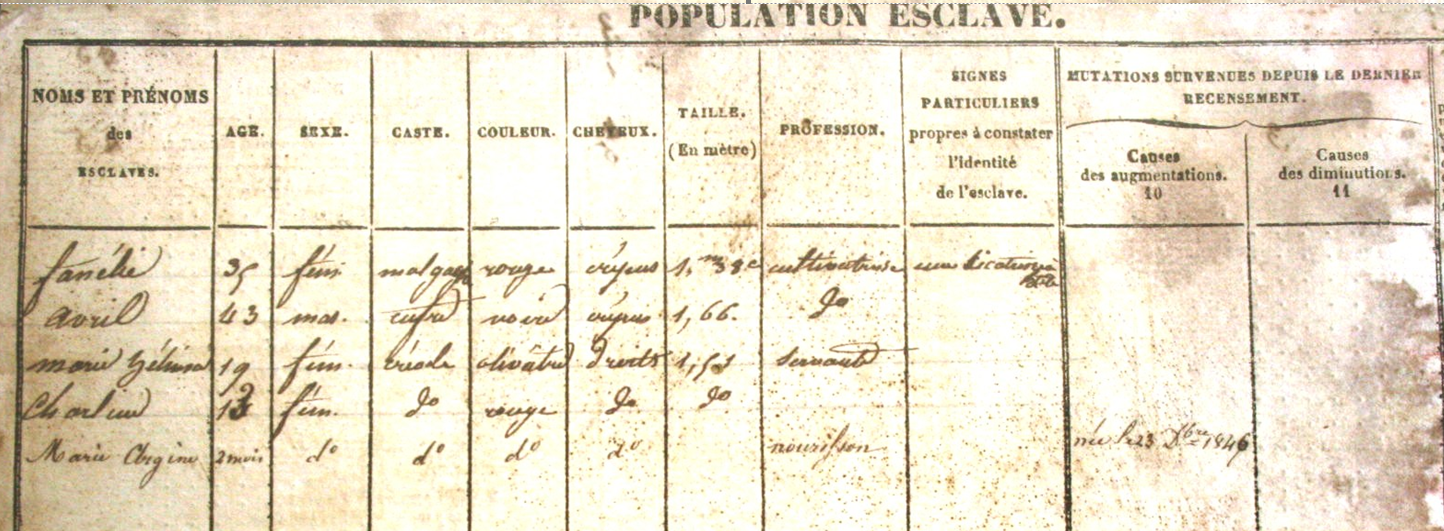 POPULATION ESCLAVE.
NOMS ET PRÉNOMS
des
ESCLAVES.
AGE.
SEXE.
CASTE.
COULEUR.
CHEVEUX.
TAILLE.
(En mètre)
PROFESSION.
SIGNES
PARTICULIERS
propres à constater
l'identité
de l'esclave.
MUTATIONS SURVENUES DEPUIS LE DERNIER
RECENSEMENT.
Causes
des augmentations.
10
Causes
des diminutions.
11
fanélie 35 fém malgage rouge crépus 1,m38c cultivatrice une
avril 43 mas. cafre noire crépus 1,66. do
marie 19 fém. créole olivâtre droits 1,51 servante
fém. do rouge do do
Marie 2 mois do do do do nourisson née le 23 Xbre 1846